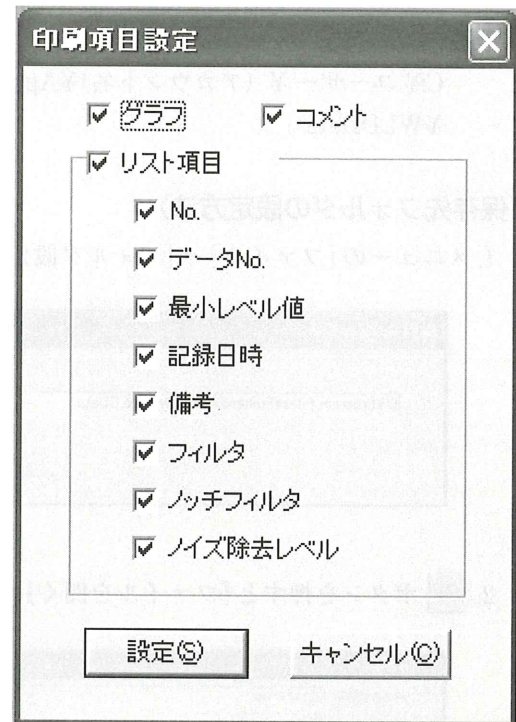 印刷項目設定
グラフ コメント
リスト項目
No.
データNo.
最小レベル値
記録日時
備考
フィルタ
ノッチフィルタ
ノイズ除去レベル
設定(S) キャンセル(C)